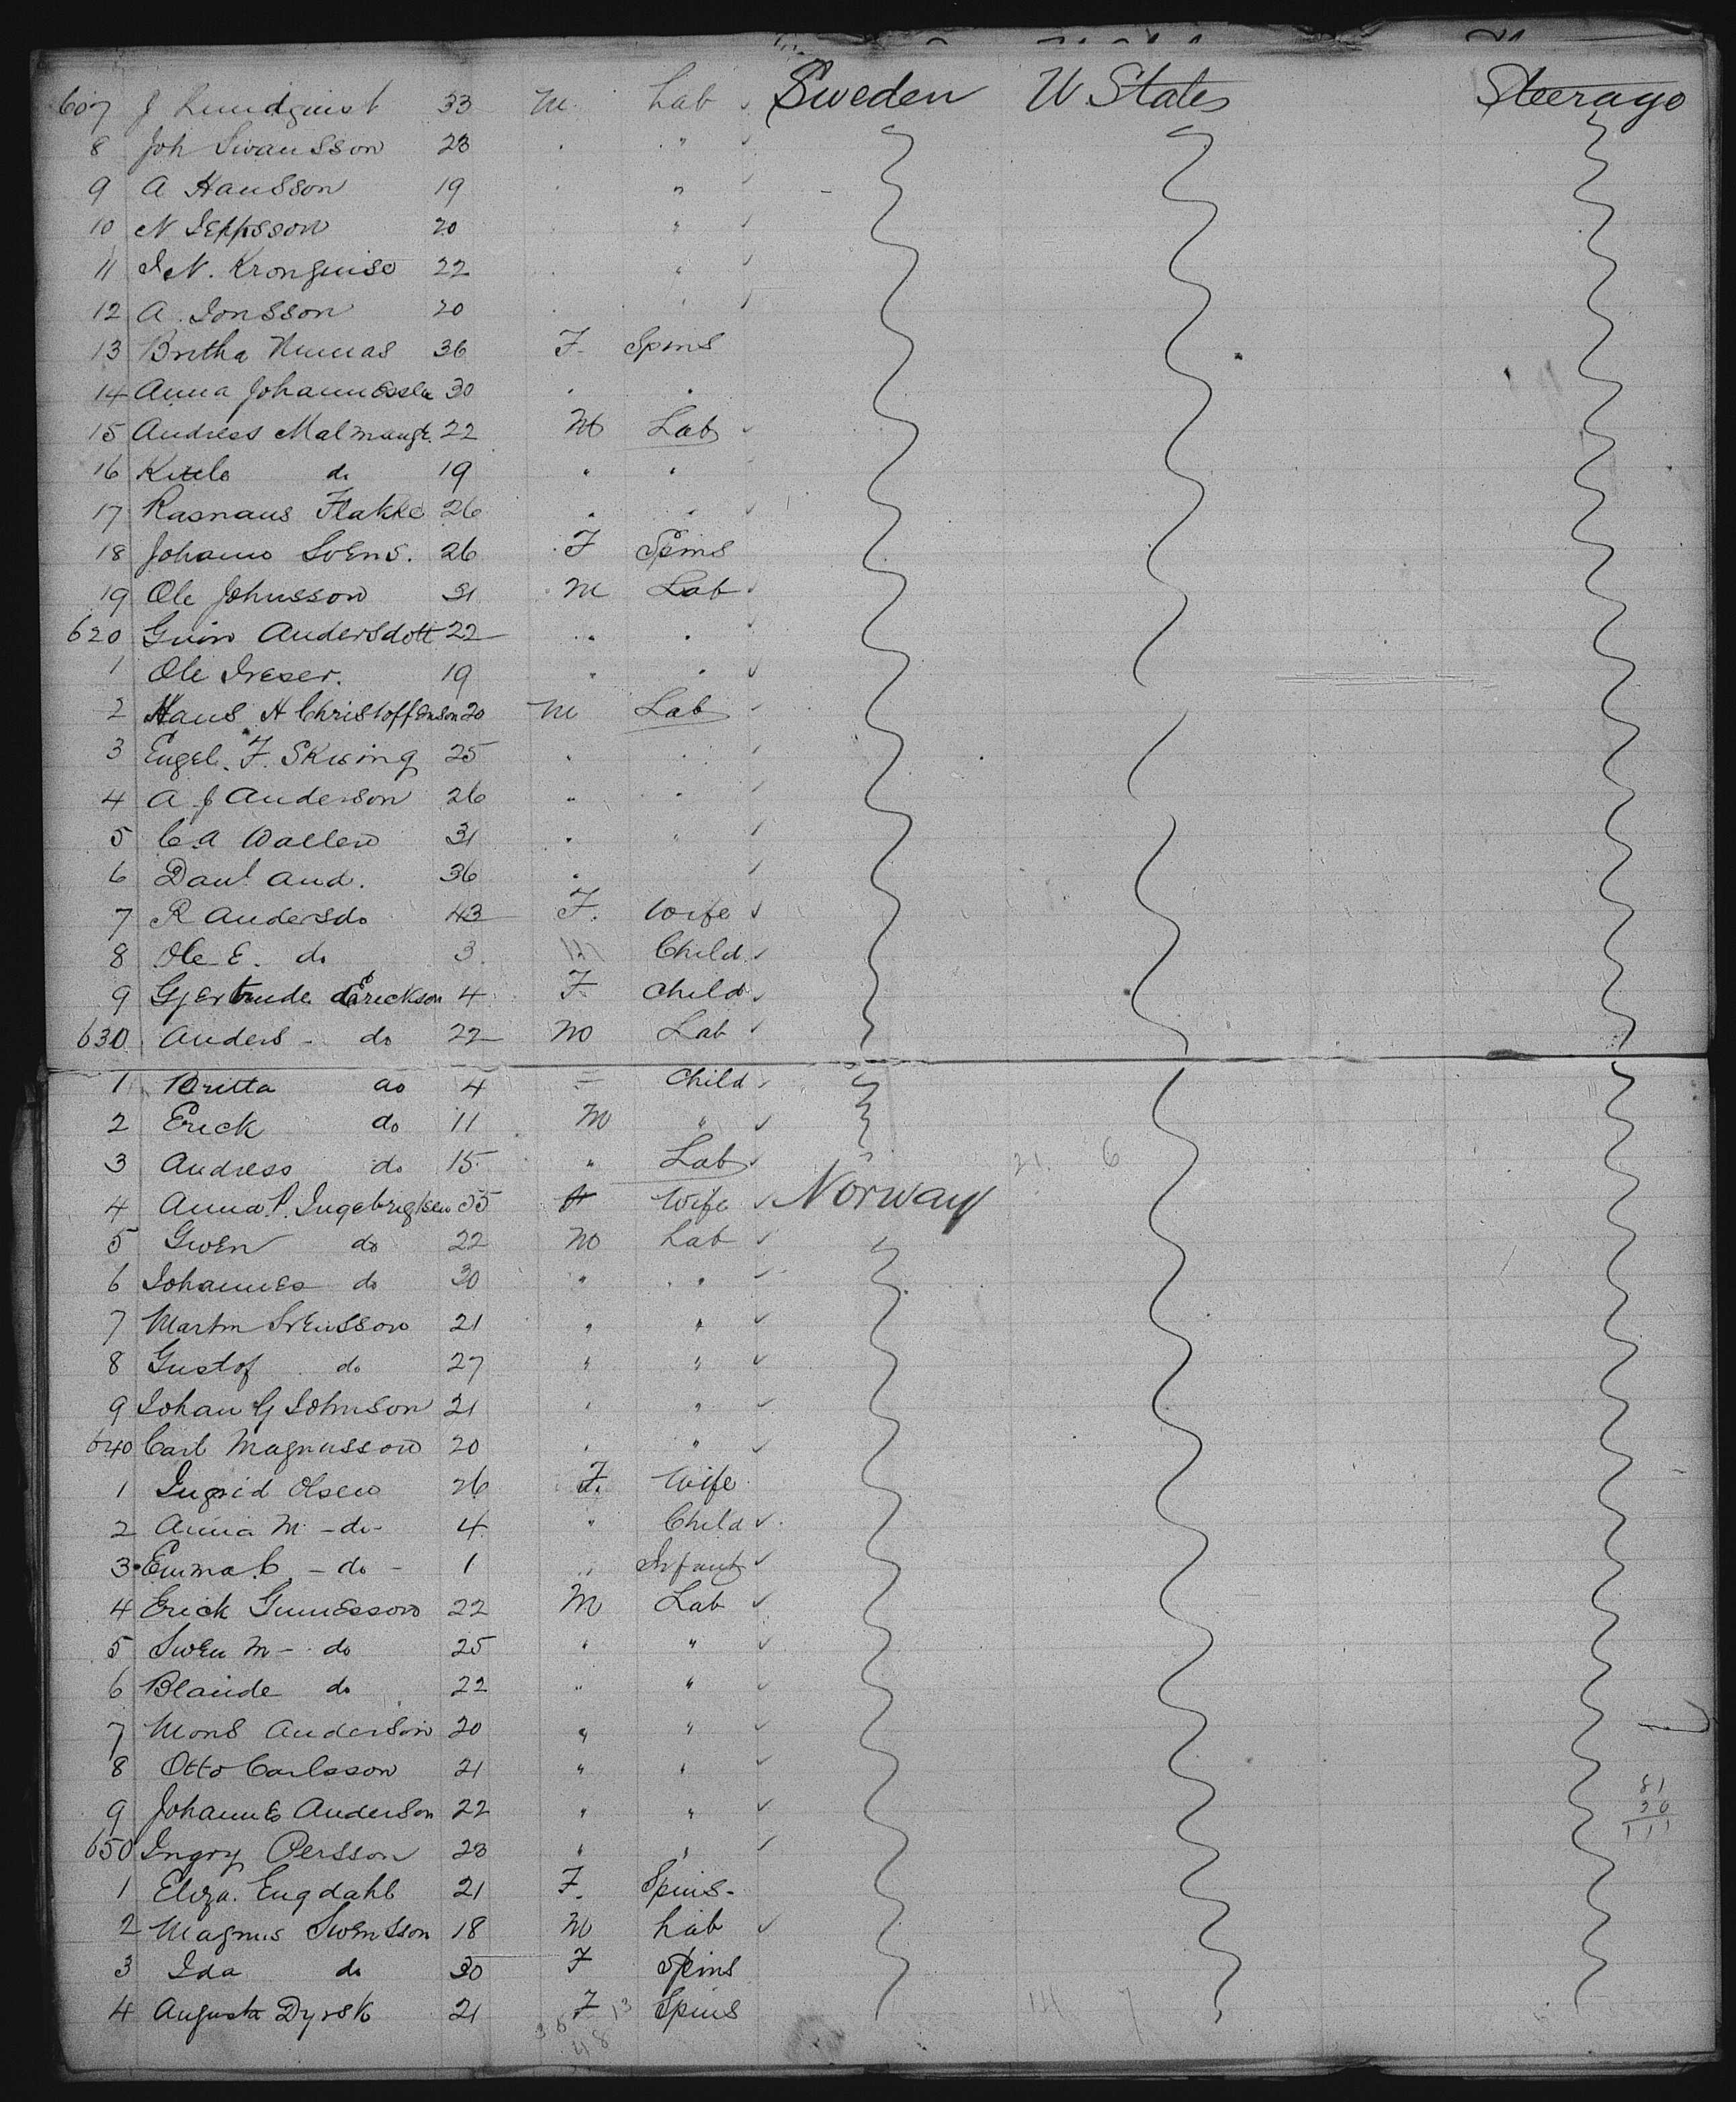 607 J Lundquist 33 M Lab Sweden U States Steerage
8 Joh Swansson 23 . "
9 A Hansson 19 . "
10 N Jeppsson 20 . "
11 I N. Kronquist 22 . "
12 A. Jonsson 20 . "
13 Britha 36 F. Spins
14 Anna 30 . .
15 Andress 22 M Lab
16 do 19 " "
17 26 . .
18 Svens. 26 F Spins
19 Ole Johnsson 31 M Lab
620 Andersdott 22 " .
1 Ole 19 " .
2 Hans H Christoffenson 20 M Lab
3 Engel. F. 25 . .
4 A J Anderson 26 " .
5 C. A Wallen 31 . "
6 Danl And. 36 .
7 R Andersdo 43 F. Wife
8 Ole E. do 3. M Child
9 Gjertrude Erickson 4 F. Child
630 Anders - do 22 M Lab
1 Britta do 4 = Child
2 Erick do 11 M "
3 Andress do 15 " Lab 21 6
4 Anna P. Ingebrigtsen 55 Wife Norway
5 Swen do 22 M Lab
6 Johannes do 30 " "
7 Martin Svensson 21 " "
8 Gustof do 27 " "
9 Johan G Johnson 21 " "
640 Carl Magnusson 20 " "
1 Ingrid Olsen 26 F. Wife
2 Anna M - do - 4 " Child
3 Emma C - do - 1 " Infant
4 Erick Gunnesson 22 M Lab
5 Swen M - do 25 " "
6 do 22 " "
7 Mons Anderson 20 " "
8 Otto Carlsson 21 " "
9 Johannes Anderson 22 " "
650 Ingry Persson 23 " "
1 Eliza. Engdahl 21 F. Spins -
2 Magnus Swensson 18 M Lab
3 Ida do 30 F Spins
4 Augusta Dyrsk 21 F Spins